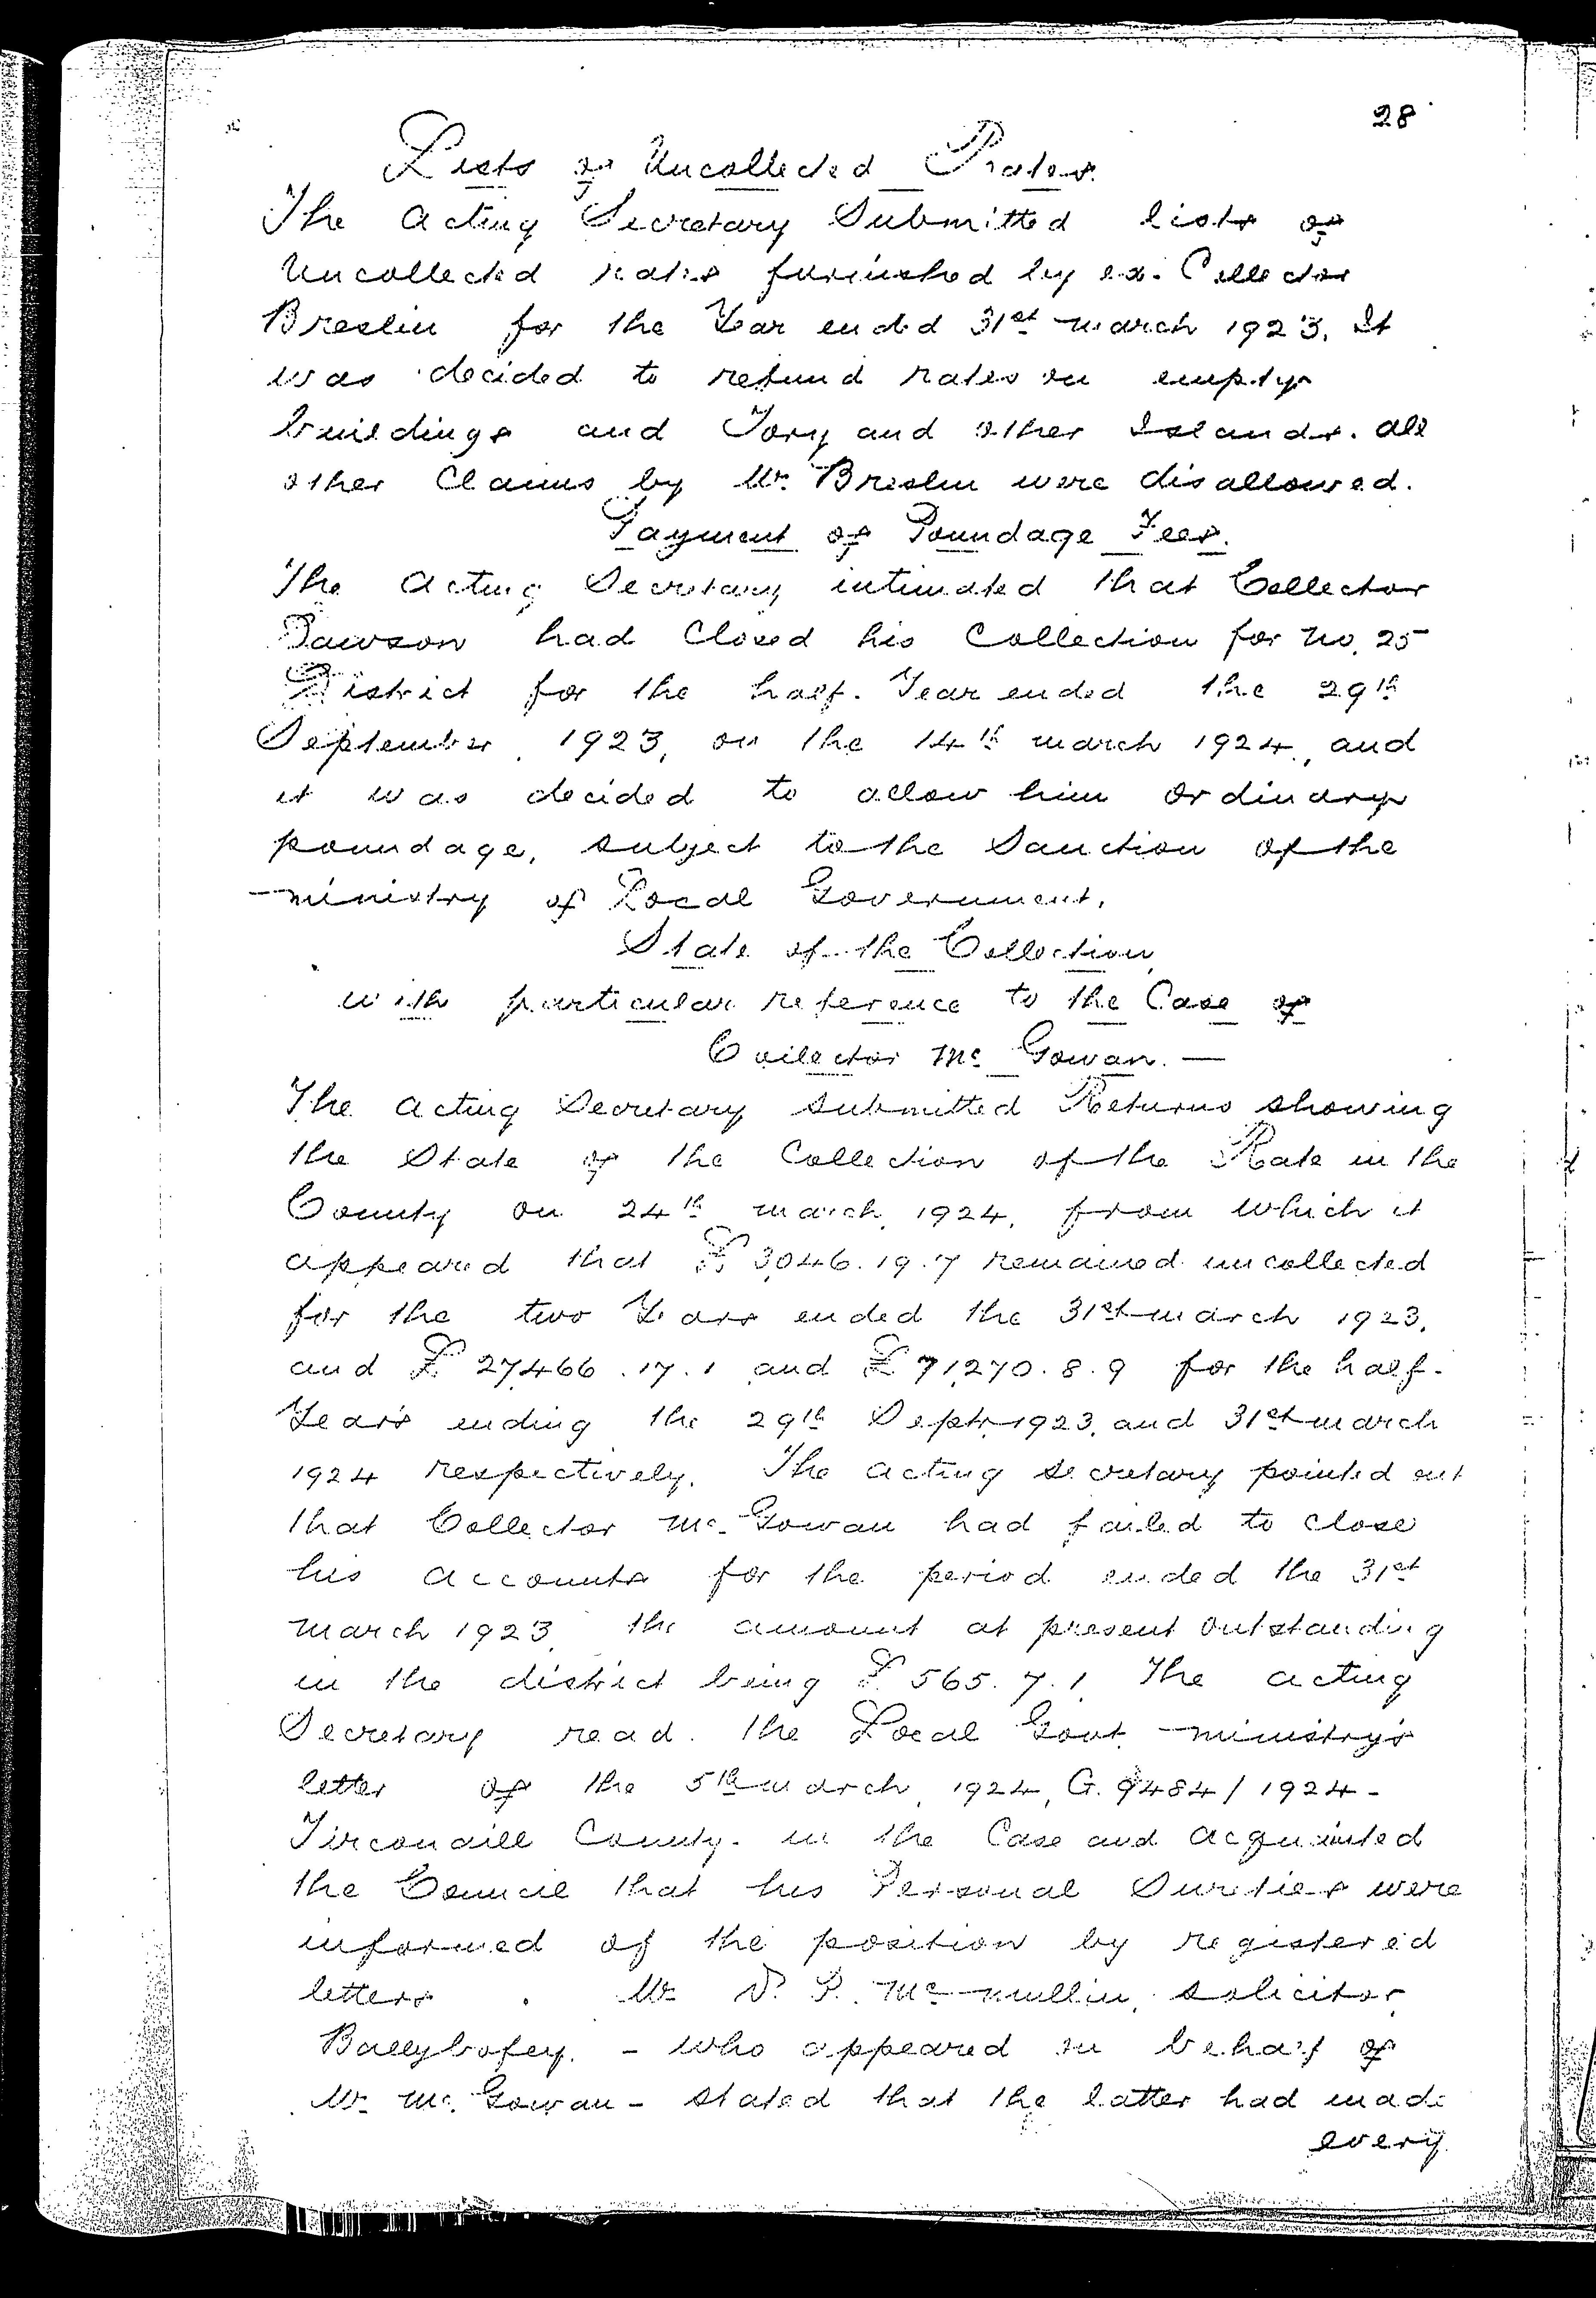 28
Lists of Uncollected Rates.
The Acting Secretary Submitted lists of
Uncollected rates furnished by ex. Collector
Breslin for the Year ended 31st march 1923. It
was decided to refund rates on empty
buildings and Tory and other Islands. All
other Claims by Mr. Breslin were disallowed.
Payment of Poundage Fees.
The Acting Secretary intimated that Collector
Dawson had Closed his Collection for No. 25
District for the half. Year ended the 29th
September, 1923, on the 14th march 1924, and
it was decided to allow him ordinary
poundage, subject to the Sanction of the
ministry of Local Government.
State of the Collection,
with particular reference to the Case of
Collector Mc Gowan. —
The Acting Secretary submitted Returns showing
the State of the Collection of the Rate in the
County on 24th march, 1924, from which it
appeared that £ 3046.19.7 remained uncollected
for the two Years ended the 31st march 1923,
and £ 27,466.17.1 and £ 71,270.8.9 for the half-
Years ending the 29th Sept, 1923, and 31st march
1924 respectively. The acting secretary pointed out
that Collector Mc. Gowan had failed to close
his accounts for the period ended the 31st
march 1923, the amount at present outstanding
in the district being £ 565.7.1. The acting
Secretary read the Local Govt ministry's
letter of the 5th march, 1924, G. 9484/1924-
Tirconaill County. in the Case and acquainted
the Council that his Personal Sureties were
informed of the position by registered
letters. Mr. P. Mc mullin, solicitor,
Ballybofey. - who appeared on behalf of
Mr. Mc. Gowan - stated that the latter had made
every